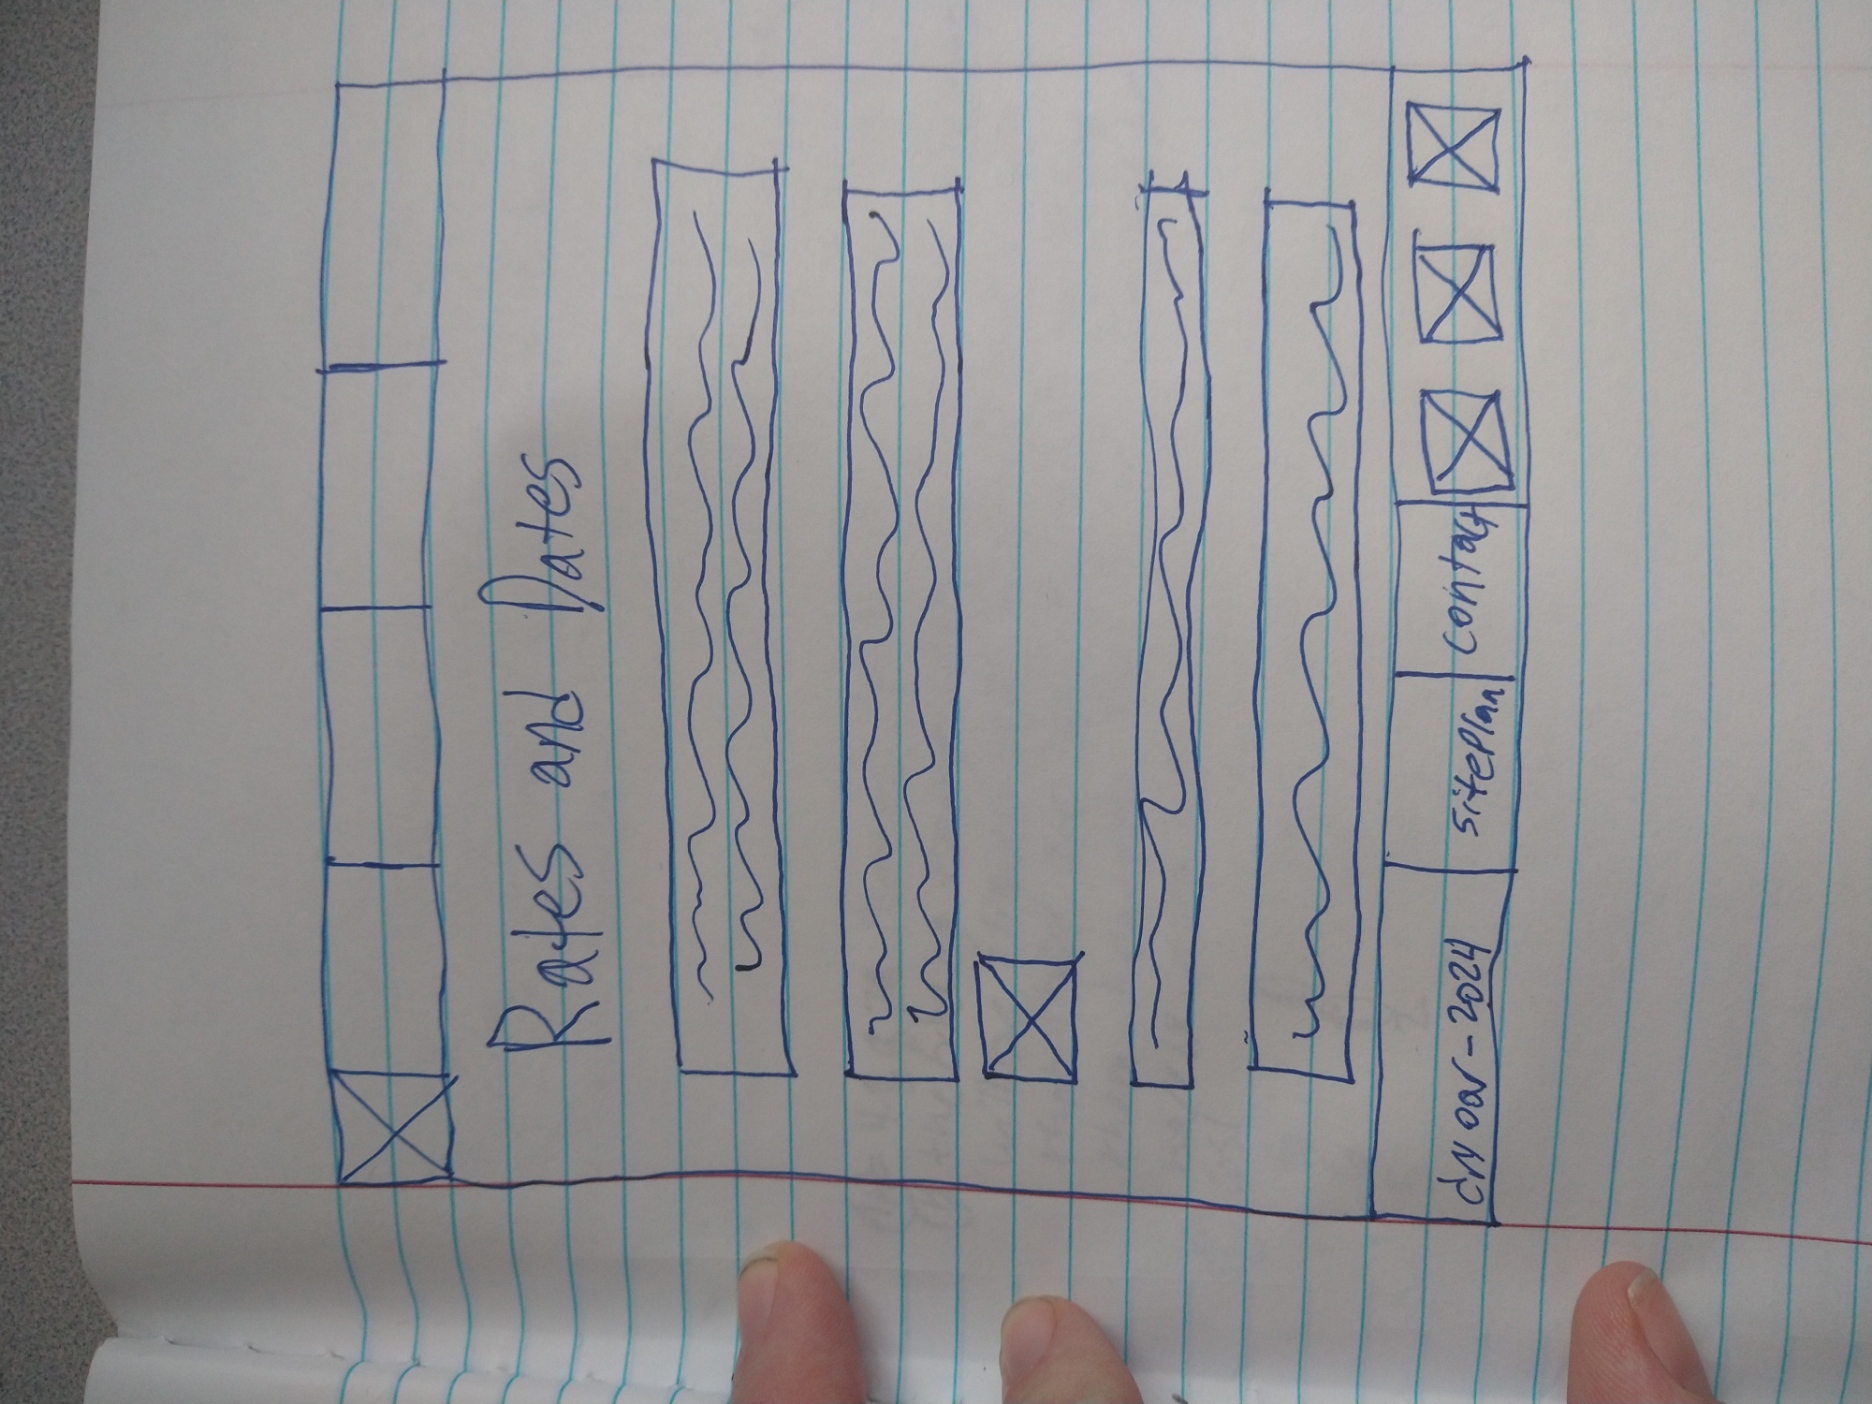 Rates and Dates
- 2024
siteplan
contact